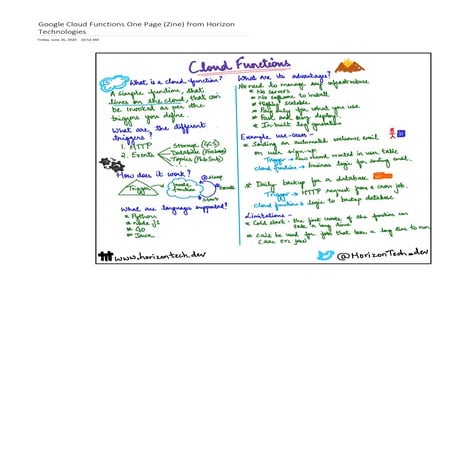 Google Cloud Functions One Page (Zine) from Horizon
Technologies
Friday, June 26, 2020 10:53 AM
Cloud Functions
What is a cloud function?
A simple function that
lives on the cloud, that can
be invoked as per the
triggers you define.
What are the different
triggers?
1. HTTP
2. Events
Storage (GCS)
Database (Firebase)
Topics (Pub Sub)
How does it work?
Trigger
node
Function
What are languages supported?
* Python
* node JS
* GO
* Java
What are its advantages?
No need to manage any infrastructure
* No servers
* No software to install
* Highly scalable
* Pay only for what you use
* Fast and easy deploy
* In-built log generation
Example use-cases -
* Sending an automated welcome email
on user sign-up
Trigger → new record created in user table
cloud function → business logic for sending email
* Daily backup for a database
Trigger → HTTP request from a cron job
cloud function → logic to backup database
Limitations -
* Cold start - the first invoke of the function can
take a long time
* Can't be used for jobs that take a long time to run
(like ETL jobs)
www.horizontech.dev
@HorizonTech_dev